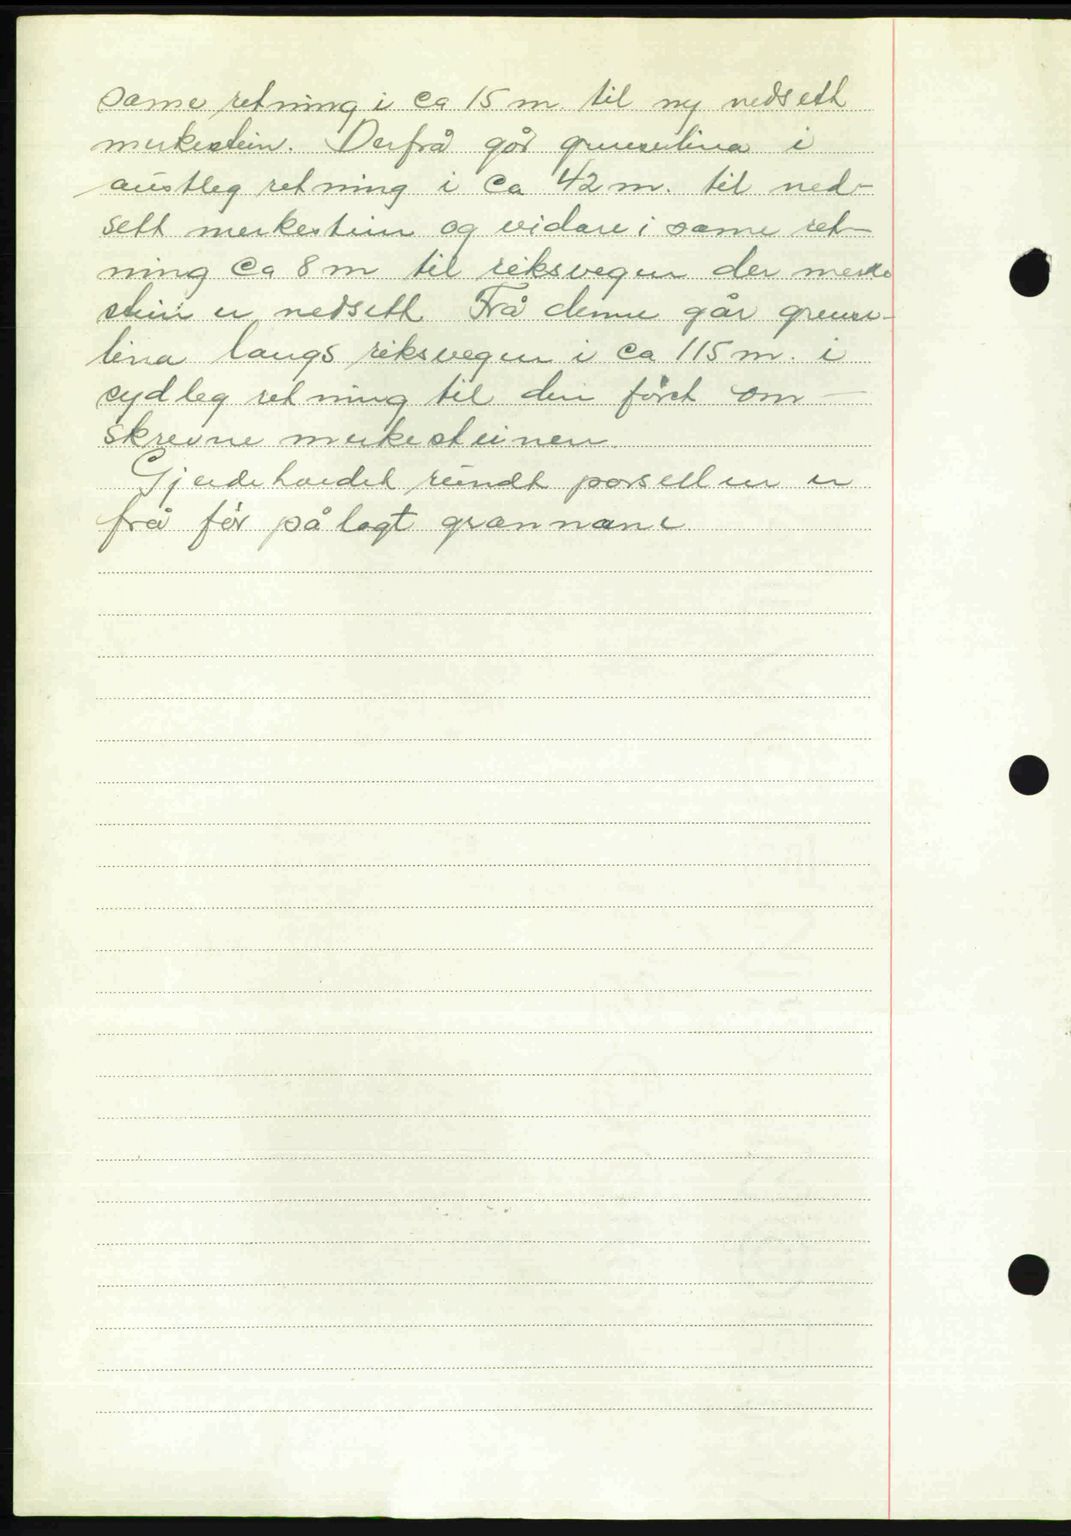 same retning i ca 15 m. til ny nedsett
merkestein. Derfrå går grenselina i
austleg retning i ca 42 m. til ned-
sett merkestein og vidare i same ret-
ning ca 8 m til riksvegen der merke
stein er nedsett. Frå denne går grense-
lina langs riksvegen i ca 115 m. i
sydleg retning til den først om-
skrevne merkesteinen.
Gjerdehaldet rundt parsellen er
frå før pålagt grannane.